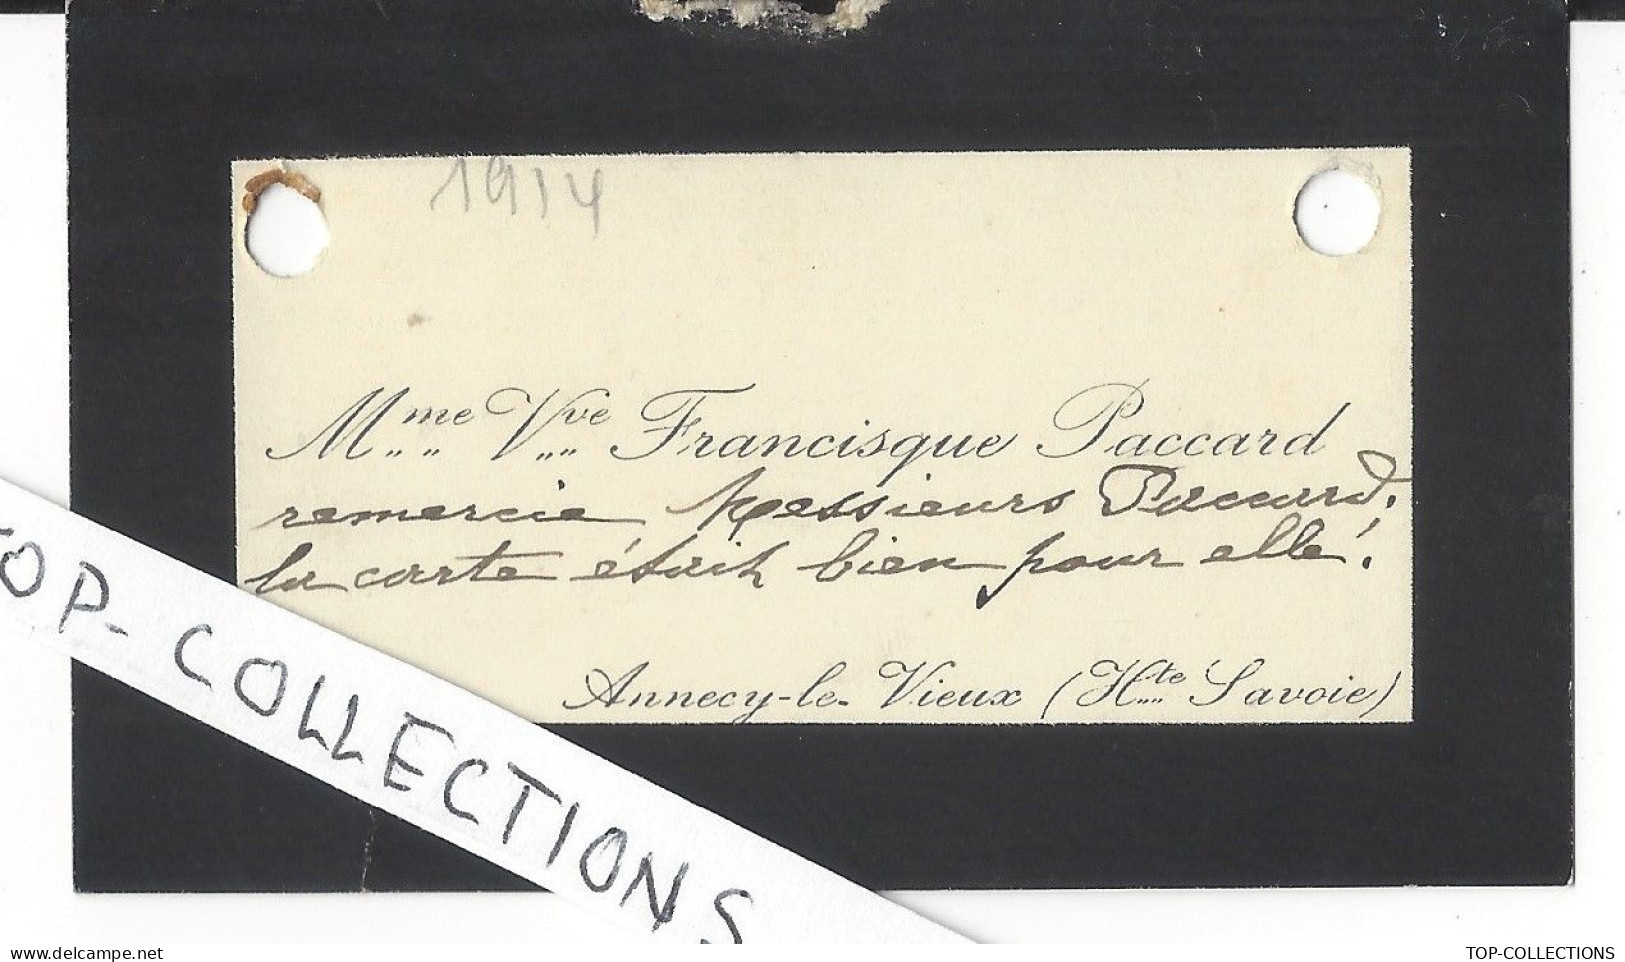 1914
Mme Vve Francisque Paccard
remercie Messieurs Paccard.
la carte était bien pour elle!
Annecy-le-Vieux (Hte Savoie)
TOP-COLLECTIONS
TOP-COLLECTIONS